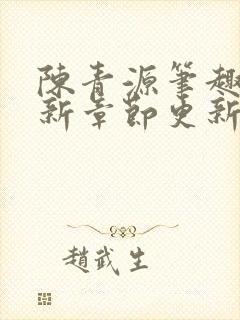 陳青源筆趣
新章節更新
趙武生